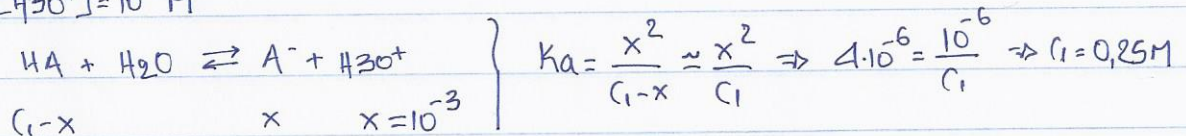 HA + H2O ⇄ A⁻ + H3O⁺
C₁-x x x = 10⁻³
Ka = x²/(C₁-x) ≃ x²/C₁ ⇒ 4·10⁻⁶ = 10⁻⁶/C₁ ⇒ C₁ = 0,25M